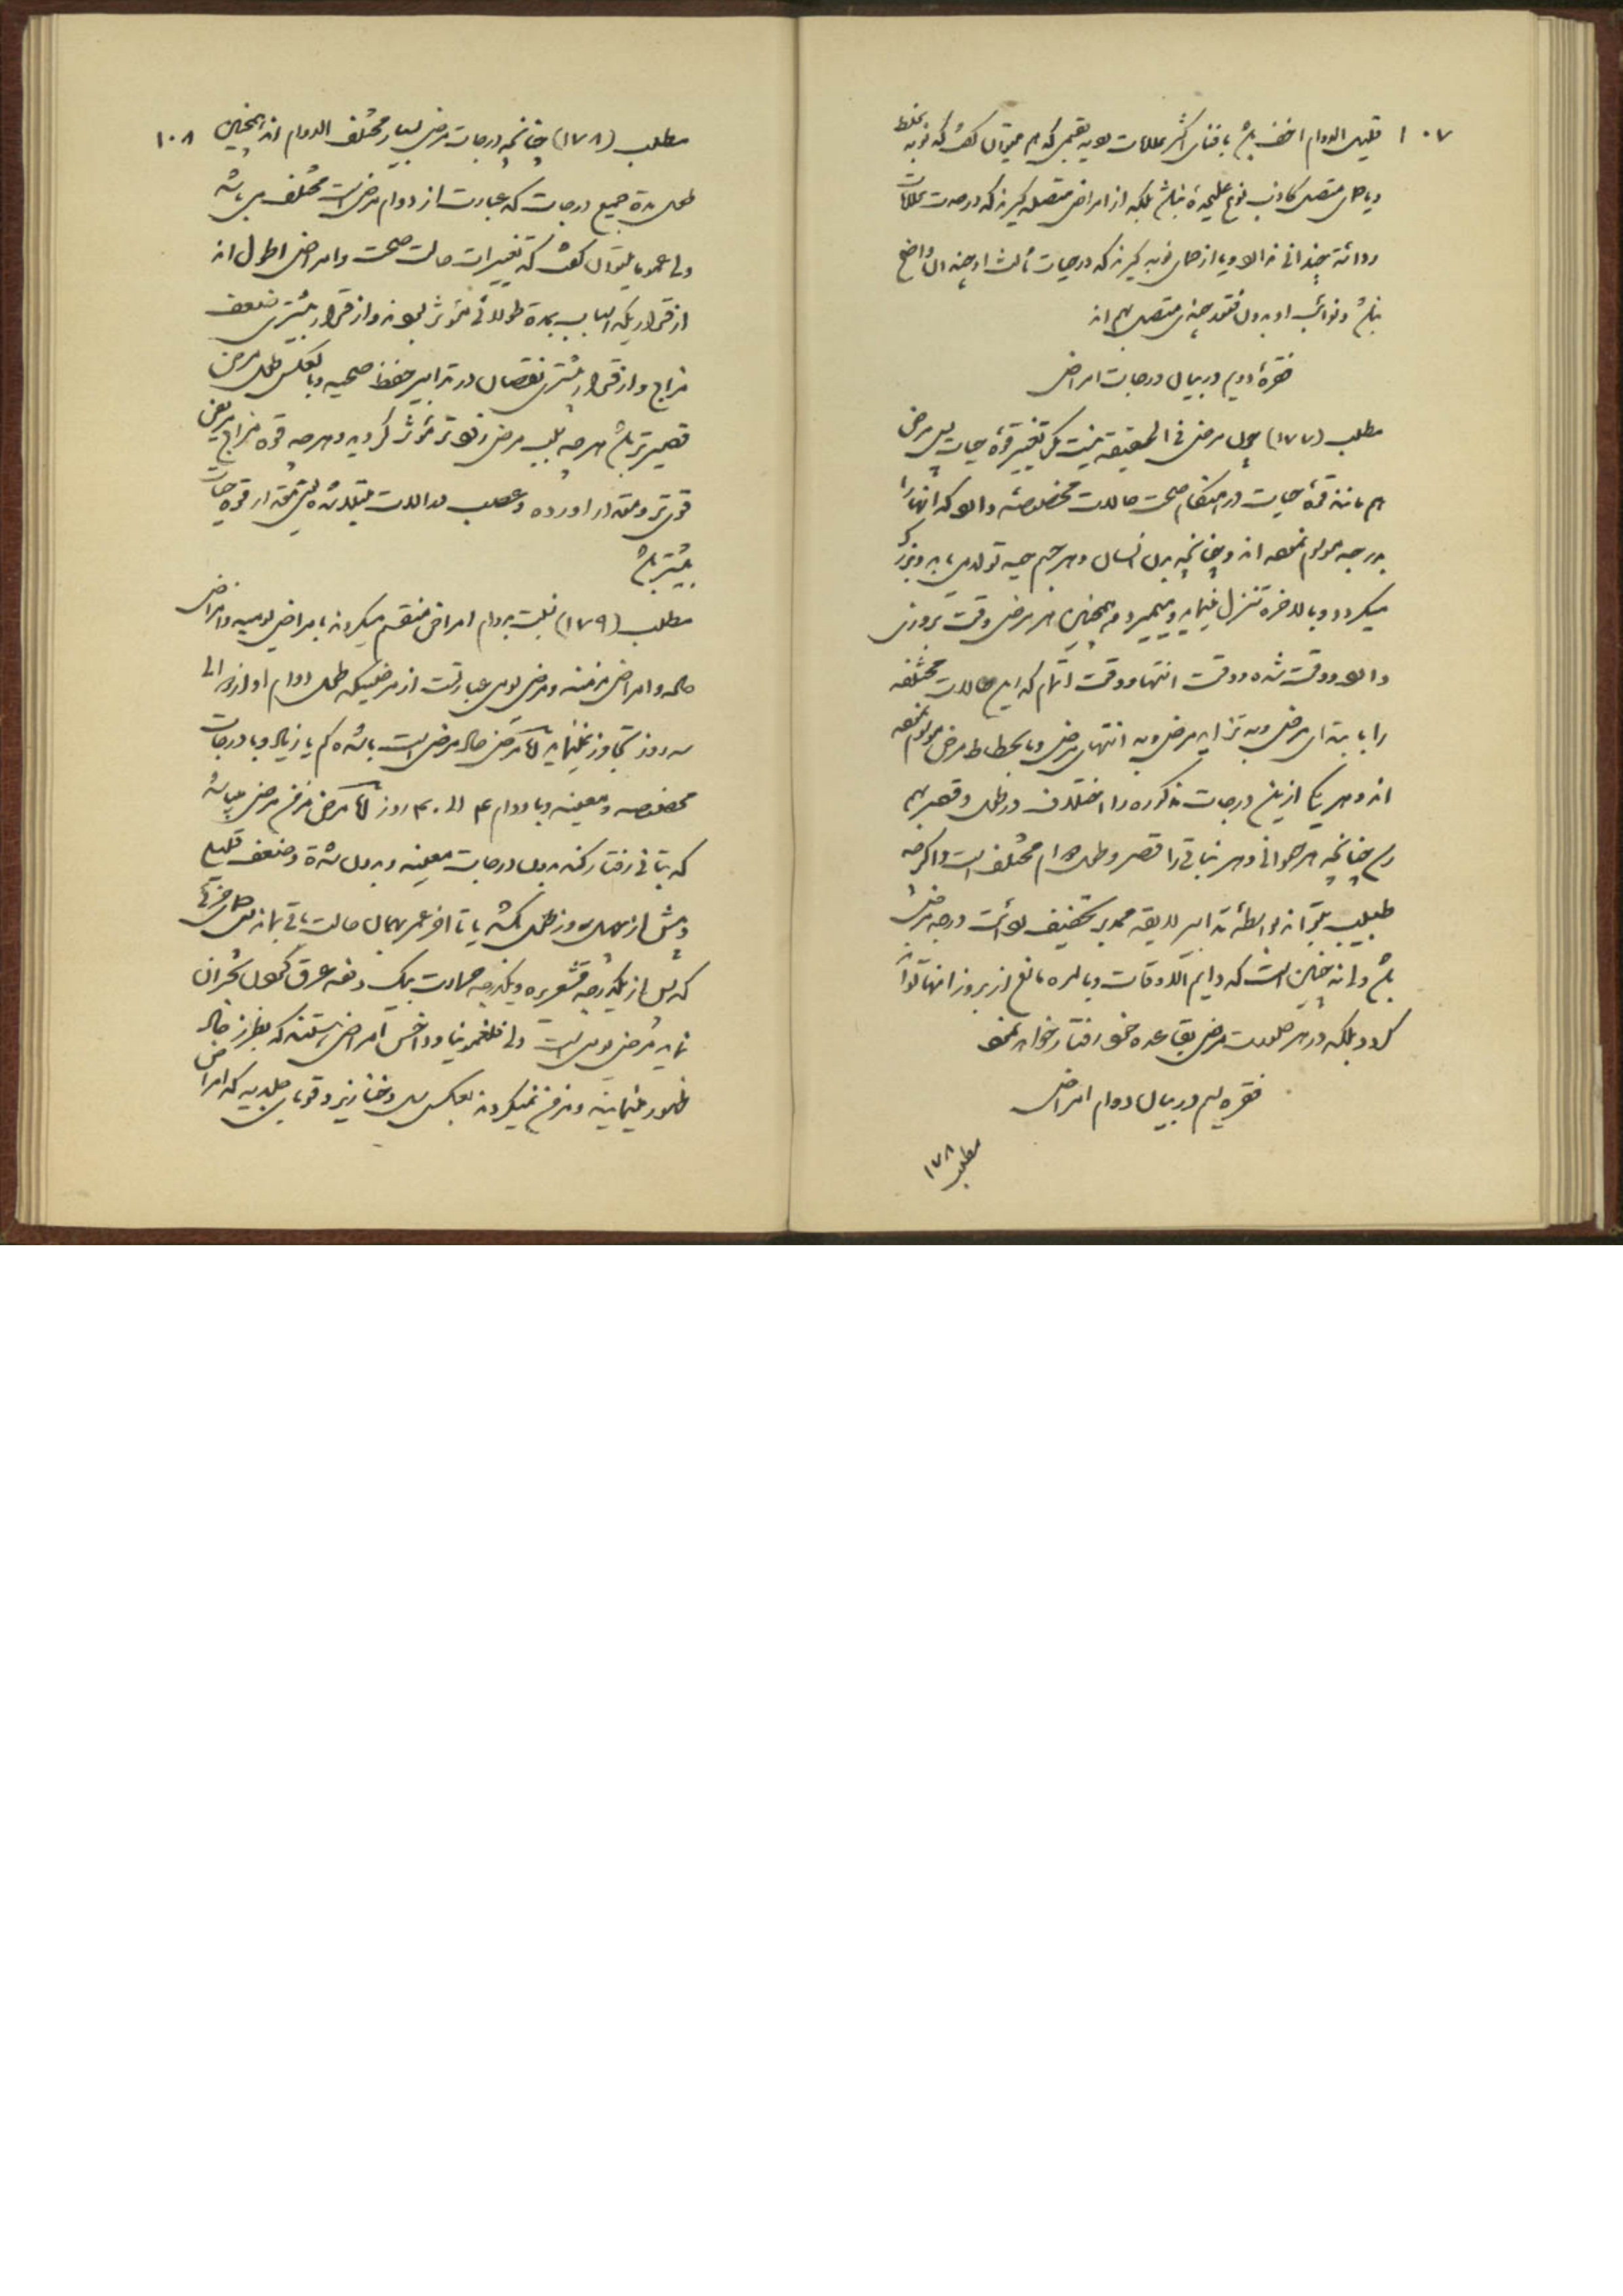 ۱۰۷
قلیل الدوام اخف باشد با فنای اکثر علامات لهذا بقسمی که هم میتوان گفت که نوبه مختلط
و یا حمای متصل کاذب نوع علیحده نباشد بلکه از امراض متصله گیرند که در مدت علامات
ردائة چندانی ندارد و یا از حمای نوبه گیرند که درجات ثالث او چندان واضح
نباشد و نوائب او بدون فقد چندی متصل بهم اند
فقرۀ دویم در بیان درجات امراض
مطلب (۱۷۷) چون مرض فی الحقیقه نیست مگر تغییر قوۀ حیات پس مرض
هم مانند قوۀ حیات در هنگام صحت حالات مخصوصه دارد که انها را
بدرجه موسوم نموده اند و چنانچه بدن انسان و هر جسم حیه تولد می یابد و بزرگ
میگردد و بالاخره تنزل مینماید و میمیرد همچنین هر مرض وقت بروزی
دارد و وقت شدة و وقت انتها و وقت اتمام که این حالات مختلفه
را بابتدای مرض و به تزاید مرض و به انتهای مرض و بانحطاط مرض موسوم نموده
اند و هر یک از این درجات مذکوره را اختلاف در طول و قصر بهم
رسد چنانچه هر حیوانی و هر نباتی را قصر و طول دوام مختلف است و اگرچه
طبیب میتواند بواسطۀ تدابیر لایقه ممد بر تخفیف بودنت درجه مرض
باشد ولی نه چنین است که دایم الاوقات و بالمره مانع از بروز انها تواند
گردد بلکه در هر صورت مرض بقاعده خود رفتار خواهد نمود
فقره سیم در بیان دوام امراض
مطلب ۱۷۸
۱۰۸
مطلب (۱۷۸) چنانچه درجات مرض بسیار مختلف الدوام اند همچنین
طول مدة جمیع درجات که عبارت از دوام مرض است مختلف می باشد
ولی عموما میتوان گفت که تغییرات حالت صحت و امراض اطول اند
از قراریکه اسباب بمدة طولانی مؤثر بوده اند و از قرار بیشتری ضعف
مزاج و از قرار بیشتری نقصان در تدابیر حفظ صحیه و بالعکس طول مرض
قصیرتر باشد هر چه سبب مرض زودتر مؤثر گردیده و هر چه قوه مزاج مریض
قوی تر و مقدار اورده و عصب در الات مبتلا شده بیش مقدار قوۀ حیات
بیشتر باشد
مطلب (۱۷۹) نسبت بدوام امراض منقسم میگردند بامراض یومیه و امراض
حاده و امراض مزمنه و مرض یومی عبارتست از مرضیکه طول دوام او از یک الی
سه روز تجاوز نمینماید اما مرض حاد مرض است با شدة کم یا زیاد و با درجات
مخصوصه و معینه و با دوام ۴ الی ۴۰ روز اما مرض مزمن مرضی میباشد
که بتانی رفتار کند بدون درجات معینه و بدون شدة و ضعف قلیل
و بیش از چهل روز طول کشد یا تا اخر عمر بهمان حالت باقی بماند مثل حمای جزئی
که پس از یکدرجه قشعریره و یکدرجه حرارت بیک دفعه عرق کمول بحران
نماید مرض یومی است ولی فلغمونیا و داخس امراض هستند که بطرز حاد
ظهور مینمایند و مزمن نمیگردند بعکس سل و خنازیر و قوبای جلدیه که امراض